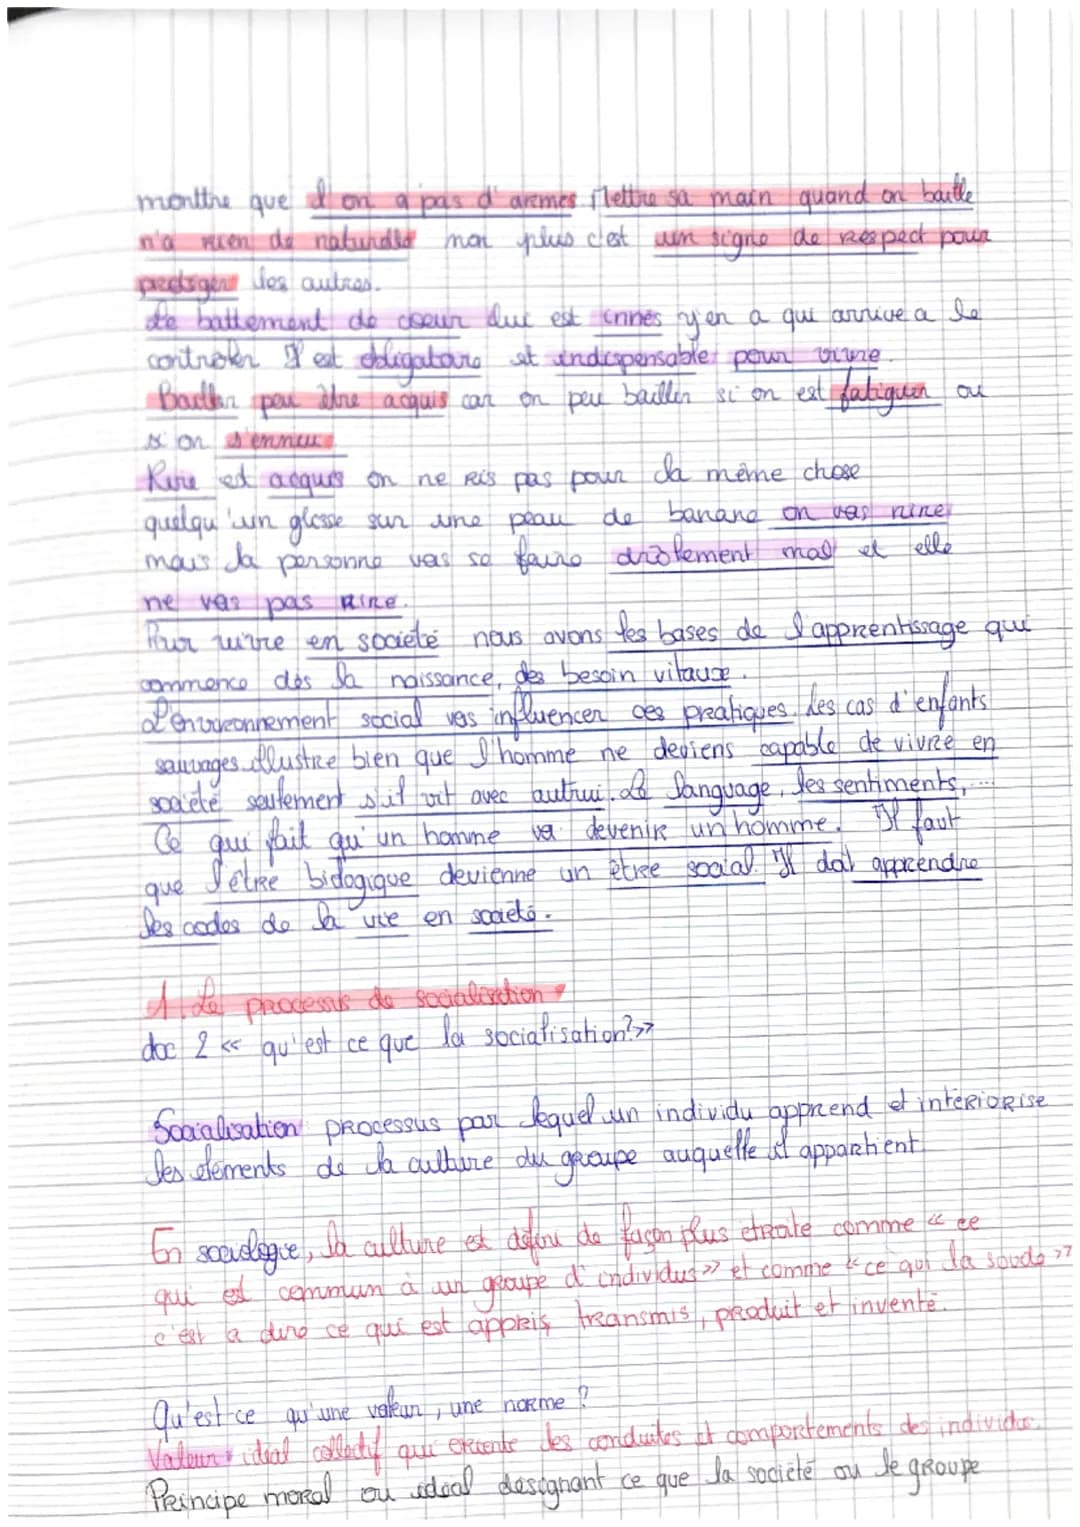 monttre que l'on a pas d'armes Mettre sa main quand on baille
n'a rien de naturelle non plus c'est un signe de respect pour
proteger les autres.
Le battement de coeur lui est innés y'en a qui arrive a le
controler Il est obligatoire et indispensable pour vivre.
Bailler peu être acquis car on peu bailler si on est fatiguer ou
si on s'ennieu
Rire est acquis on ne ris pas pour la même chose
quelqu'un glisse sur une peau de banane on vas rire
mais la personne vas se faire drôlement mal et elle
ne vas pas rire.
Pour vivre en société nous avons les bases de l'apprentissage qui
commence dès la naissance, des besoin vitaux.
L'environnement social vas influencer ces pratiques. Les cas d'enfants
sauvages illustre bien que l'homme ne deviens capable de vivre en
société seulement s'il vit avec autrui. Le language, les sentiments, ...
Ce qui fait qu'un homme va devenir un homme. Il faut
que l'être biologique devienne un être social. Il doit apprendre
les codes de la vie en société.
1. Le processus de socialisation
doc 2 << qu'est ce que la socialisation?>>
Socialisation processus par lequel un individu apprend et intériorise
les elements de la culture du groupe auquelle il appartient.
En sociologie, la culture est défini de façon plus etroite comme << ce
qui est commun à un groupe d'individus>> et comme <<ce qui la soude>>
c'est a dire ce qui est appris, transmis, produit et inventé.
Qu'est-ce qu'une valeur, une norme ?
Valeur : idéal collectif qui oriente les conduites et comportements des individus.
Principe moral ou idéal designant ce que la société ou le groupe